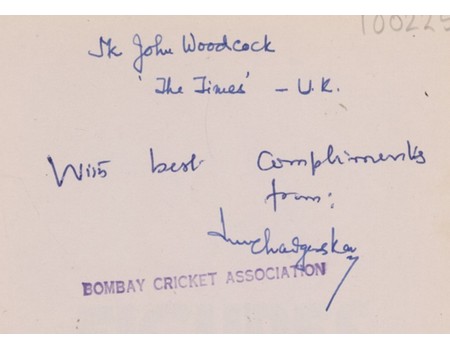 100229
Mr John Woodcock
'The Times' - U.K.
With best Compliments
from:
BOMBAY CRICKET ASSOCIATION